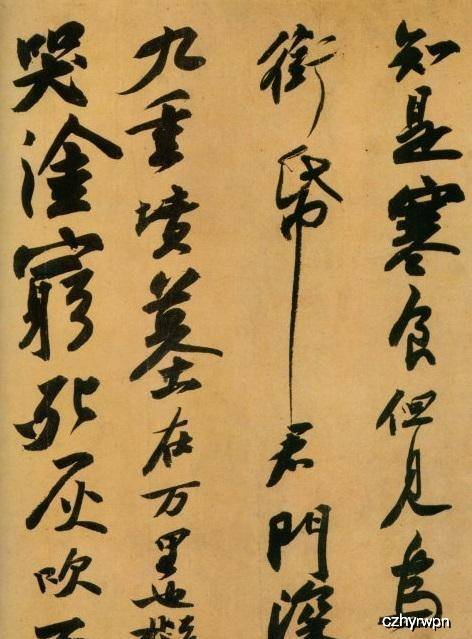 知是寒食但見烏
銜帋君門深
九重墳墓在万里也擬
哭塗窮死灰吹不
czhyrwpn